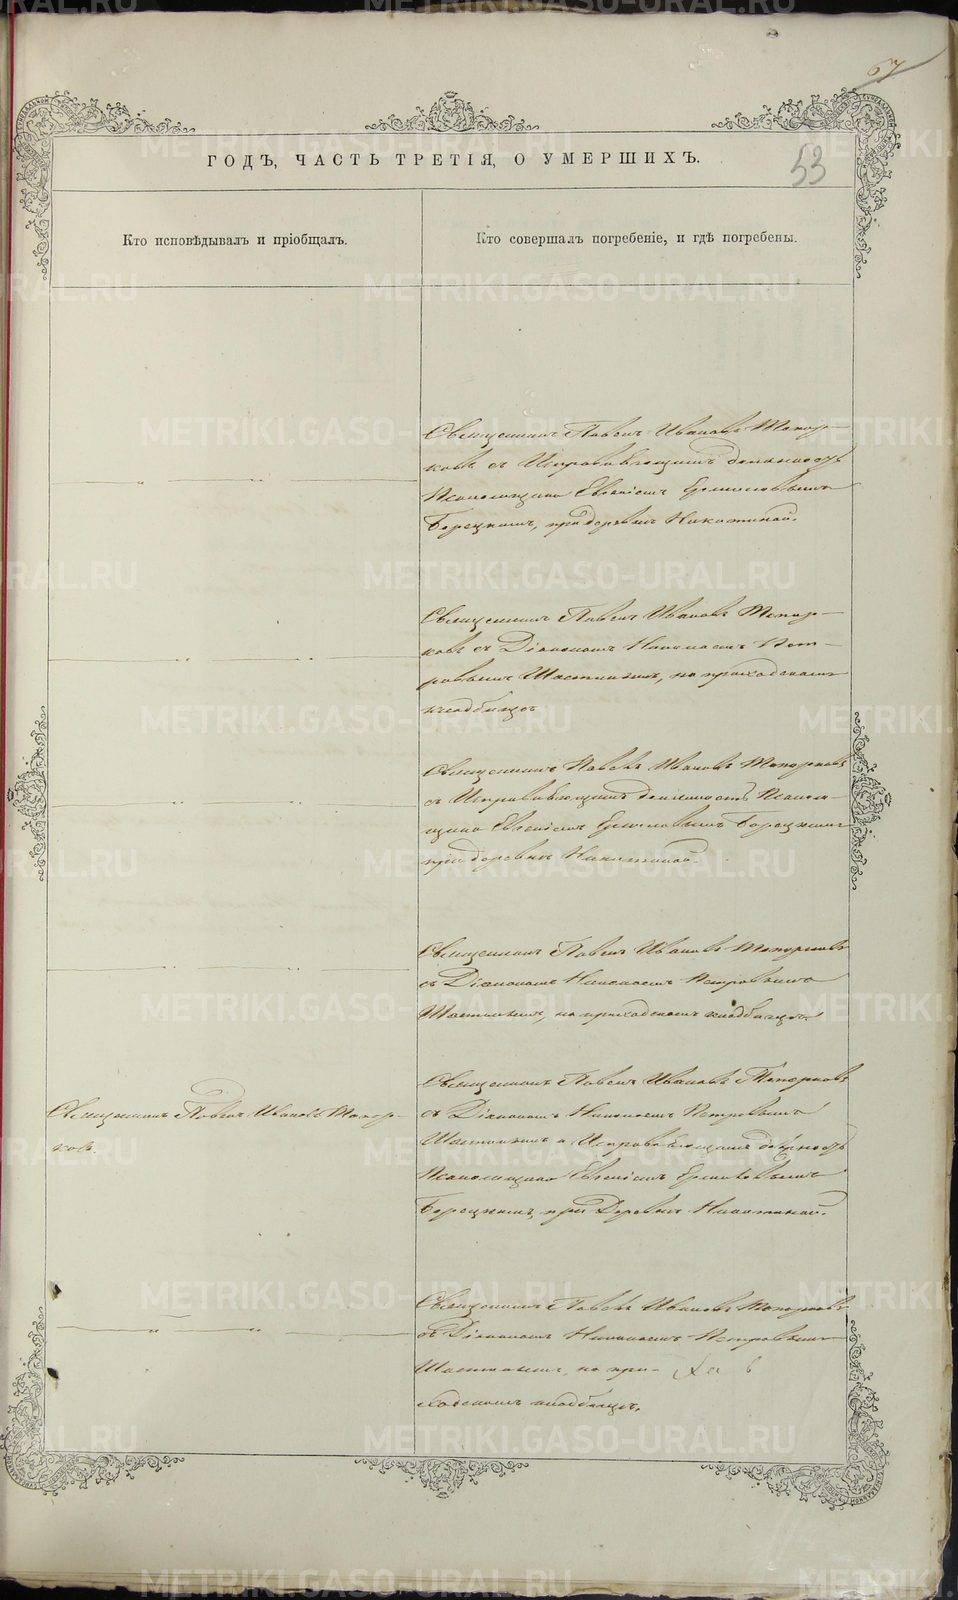 67
53
ГОДЪ, ЧАСТЬ ТРЕТІЯ, О УМЕРШИХЪ.
Кто исповѣдывалъ и пріобщалъ.
Кто совершалъ погребеніе, и гдѣ погребены.
Священникъ Павелъ Ивановъ Топор-
ковъ съ Исправляющимъ должность
Псаломщика Евгеніемъ Ермиловымъ
Борецкимъ, при деревнѣ Никитиной.
Священникъ Павелъ Ивановъ Топор-
ковъ съ Діакономъ Николаемъ Пет-
ровымъ, на приходскомъ
кладбищѣ
Священникъ Павелъ Ивановъ Топорковъ
съ Исправляющимъ должность Псалом-
щика Евгеніемъ Ермиловымъ Борецкимъ
при деревнѣ Никитиной.
Священникъ Павелъ Ивановъ Топорковъ
съ Діакономъ Николаемъ Петровымъ
на приходскомъ кладбищѣ.
Священникъ Павелъ Ивановъ Топор-
ковъ.
Священникъ Павелъ Ивановъ Топорковъ
съ Діакономъ Николаемъ Петровымъ
и Исправляющимъ должность
Псаломщика Евгеніемъ Ермиловымъ
Борецкимъ, при Деревнѣ Никитиной.
Священникъ Павелъ Ивановъ Топорковъ
съ Діакономъ Николаемъ Петровымъ
на при-
ходскомъ кладбищѣ.
METRIKI.GASO-URAL.RU